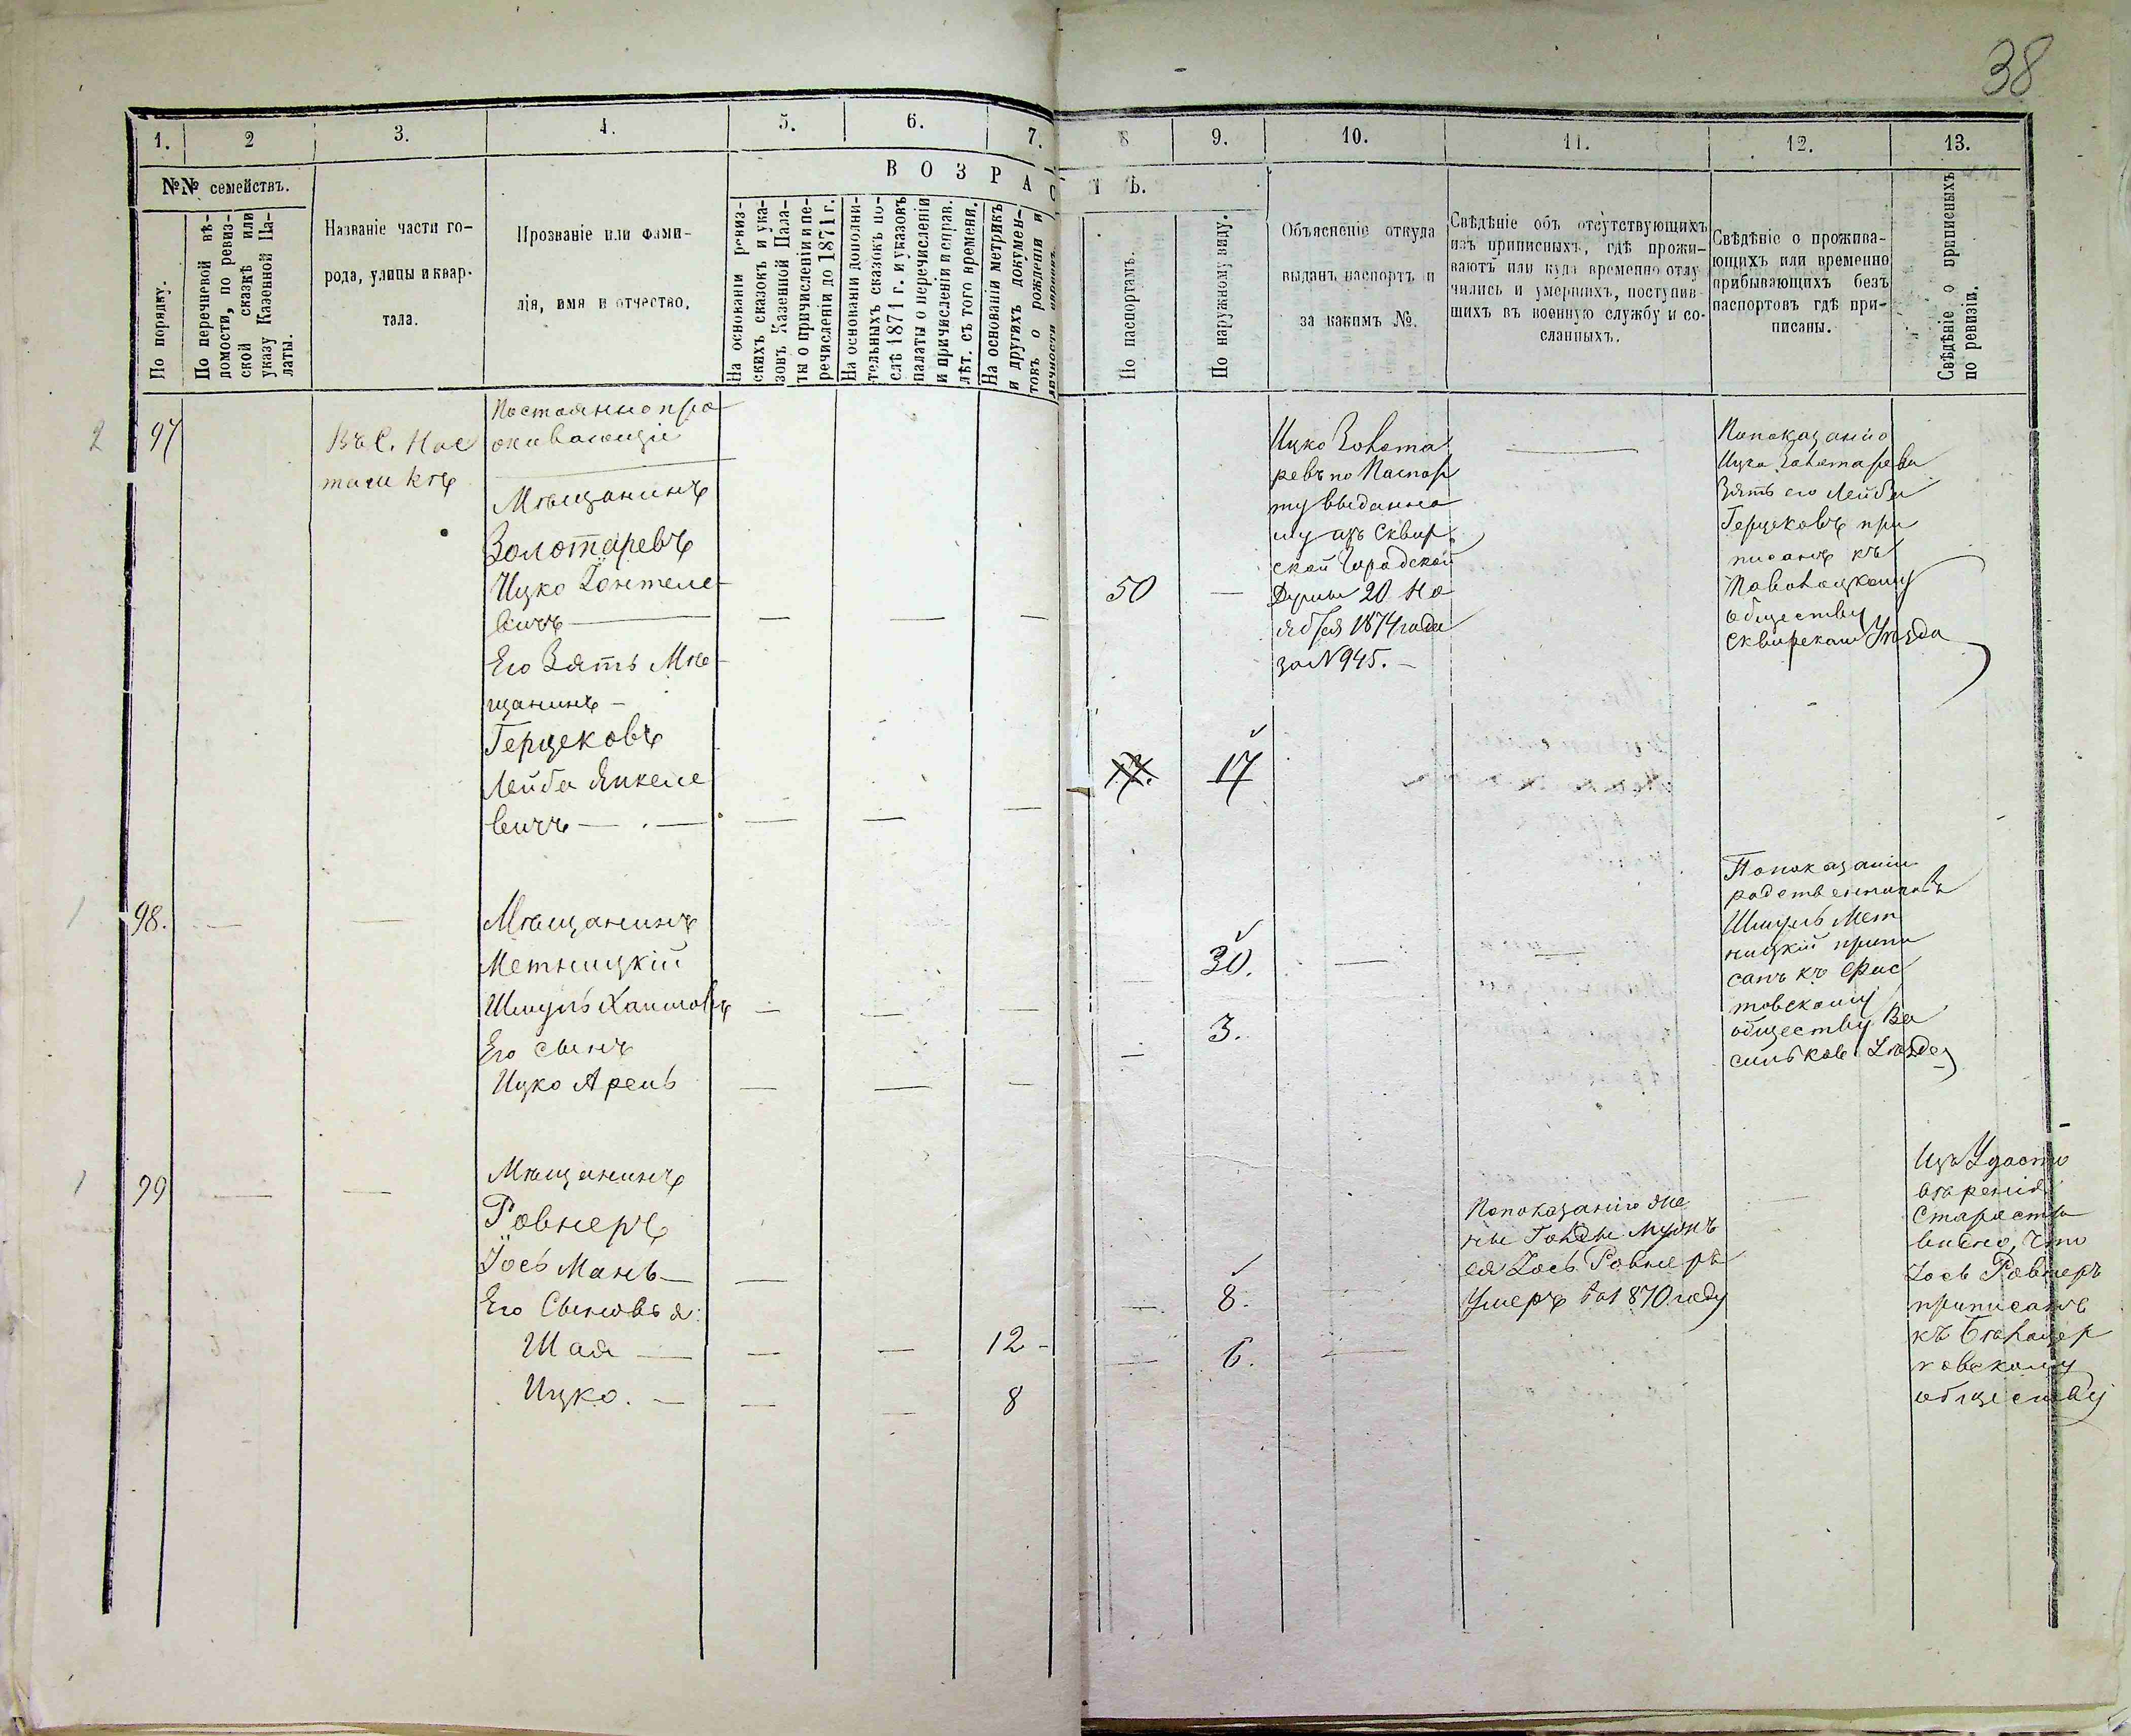 38
1.
2
3.
4.
5.
6.
7.
8
9.
10.
11.
12.
13.
№№ семействъ.
По порядку.
По перечневой вѣ-
домости, по ревиз-
ской сказкѣ или
указу Казенной Па-
латы.
Названіе части го-
рода, улицы и квар-
тала.
Прозваніе или фами-
лія, имя и отчество.
ВОЗРАС
На основаніи ревиз-
скихъ сказокъ и ука-
зовъ Казенной Пала-
ты о причисленіи и пе-
речисленіи до 1871 г.
На основаніи дополни-
тельныхъ сказокъ по-
слѣ 1871 г. и указовъ
палаты о перечисленіи
и причисленіи и справ.
лѣт. съ того времени.
На основаніи метрикъ
и другихъ докумен-
товъ о рожденіи и
Т Ѣ.
По паспортамъ.
По наружному виду.
Объясненіе откуда
выданъ паспортъ и
за какимъ №.
Свѣдѣніе объ отсутствующихъ
изъ приписныхъ, гдѣ прожи-
ваютъ или куда временно отлу
чились и умершихъ, поступив-
шихъ въ военную службу и со-
сланныхъ.
Свѣдѣніе о прожива-
ющихъ или временно
прибывающихъ безъ
паспортовъ гдѣ при-
писаны.
Свѣдѣніе о приписныхъ
по ревизіи.
2
97
Въ С. Нас
ташкѣ
Постоянно про
живающіе
Мѣщанинъ
Золотаревъ
Ицко
вичъ
Его Зять Мѣ-
щанинъ
Герцековъ
Лейба Янкеле
вичъ
50
17
Ицко Золота
ревъ по Паспор
ту выданно
му изъ Сквир
ской Городской
Думы 20 Но
ября 1874 года
за N 945.
По показанію
Ицка Золотарева
Зять его Лейба
Герцековъ при
писанъ къ
Паволоцкому
обществу
Сквирскаго Уѣзда
1
98.
Мѣщанинъ
Метницкій
Шмуль Хаимовъ
Его сынъ
Ицко Арень
30.
3.
По показанію
родственниковъ
Шмуль Мет
ницкій припи
санъ къ Фас
товскому
обществу Ва
сильков. Уѣзда
1
99
Мѣщанинъ
Ровнеръ
Іось Мань
Его Сыновья:
Шая
Ицко.
12
8
8.
6.
По показанію же
ны Голды мужъ
ея Іось Ровнеръ
Умеръ въ 1870 году
Изъ Удосто
вѣренія
Старосты
видно, что
Іось Ровнеръ
приписанъ
къ Бѣлоцер
ковскому
обществу